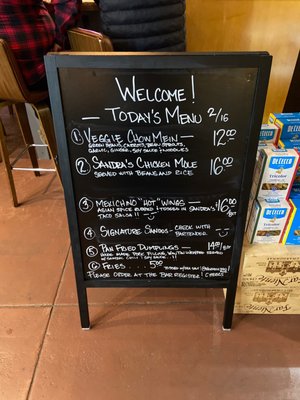 WELCOME!
TODAY'S MENU 2/16
① VEGGIE CHOW MEIN — 12.00
GREEN BEANS, CARROTS, BEAN SPROUTS,
GARLIC, GINGER, SOY SAUCE & NOODLES
② SANDRA'S CHICKEN MOLE 16.00
SERVED WITH BEANS AND RICE
③ MEXICHINO "HOT" WINGS — $16.00
ASIAN SPICE RUBBED & TOSSED IN SANDRA'S
TACO SALSA!!
④ SIGNATURE SANDOS - CHECK WITH
BARTENDER
⑤ PAN FRIED DUMPLINGS — 14.00
HOUSE MADE PORK FILLING
SOY SAUCE
⑥ FRIES . . . 5.00
PLEASE ORDER AT THE BAR REGISTER!
DE CECCO
DE CECCO
Tricolor
DE CECCO
Far Niente